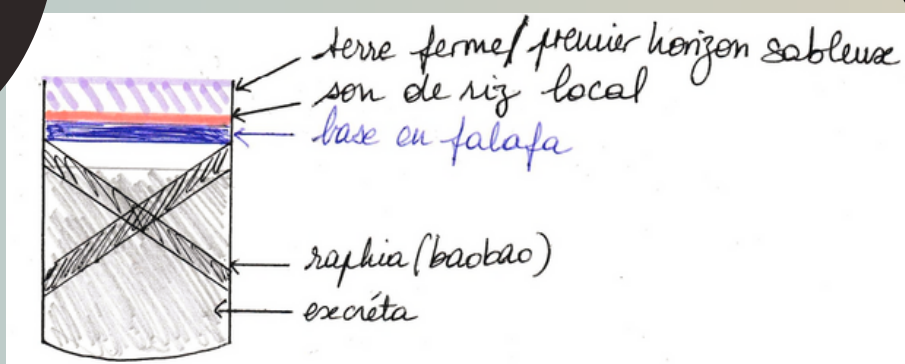 terre ferme/ premier horizon sableux
son de riz local
base en falafa
raphia (baobao)
excréta